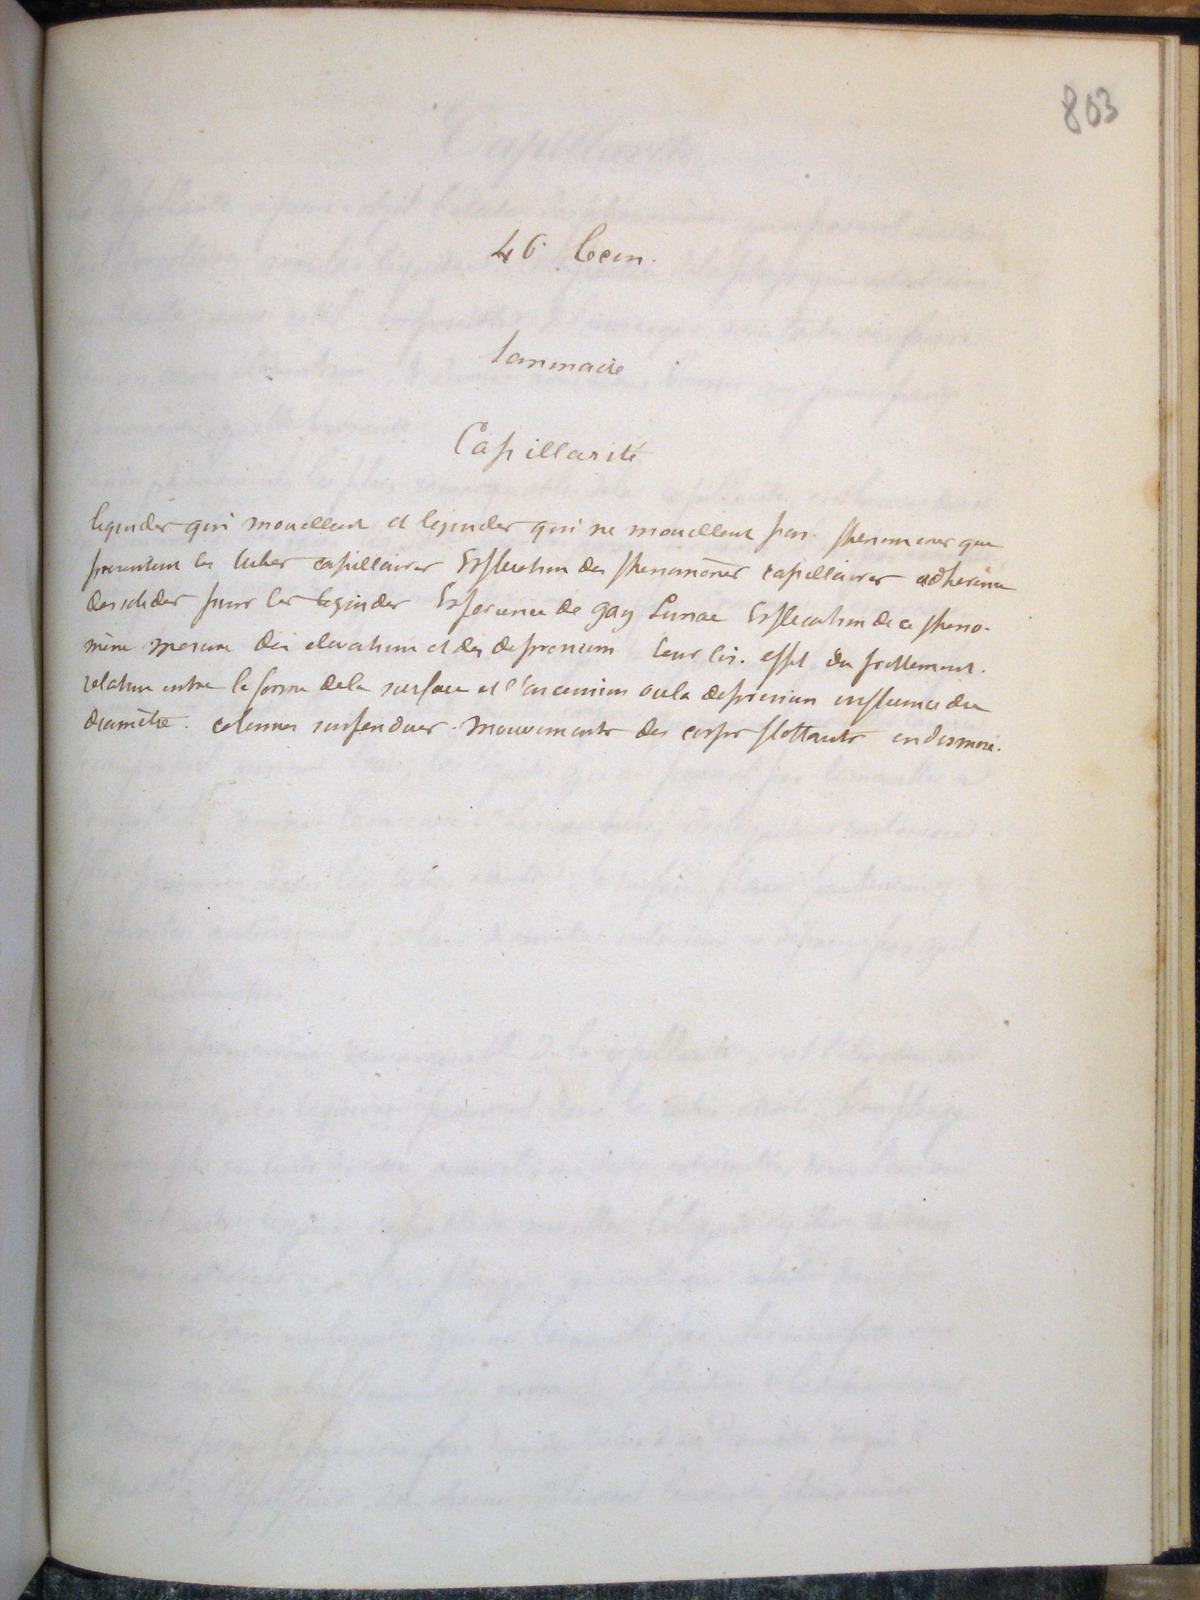 803
46 leçon.
Sommaire
Capillarité
liquides qui mouillent et liquides qui ne mouillent pas. phenomenes que
presentent les tubes capillaires Explication des phenomènes capillaires adherence
des solides pour les liquides Experience de gay Lussac Explication de ce pheno-
mène mesure des elevations et des depressions leur lois. effet du frottement.
relation entre la forme de la surface et l'ascension ou la depression influence du
diamètre. colonnes suspendues. Mouvements des corps flottants endosmose.